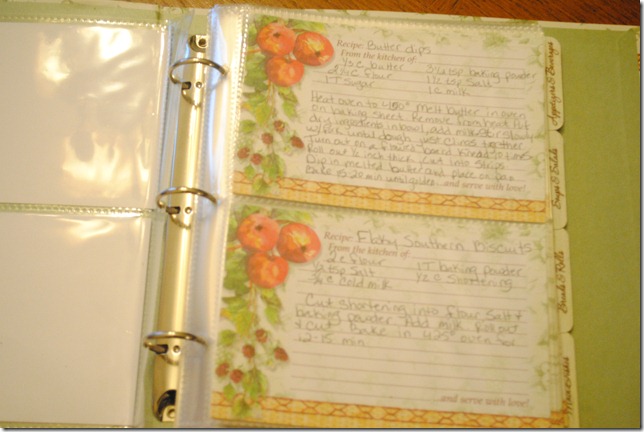 Recipe: Butter dips
From the kitchen of:
butter
3 1/2 tsp baking powder
flour
1 1/2 tsp Salt
1T sugar
1 c milk
Heat oven to 400° melt butter in oven
on baking sheet. Remove from heat. Put
dry ing in bowl, add milk stir slowly
w/fork until dough just clings together
Turn out on a floured board Knead 10 times
Roll out 1/2 inch thick. Cut into strips
Dip in melted butter and place on pan
Bake 15-20 min until golden
...and serve with love!
Recipe: Flaky Southern Biscuits
From the kitchen of:
2 c flour
1T baking powder
tsp Salt
1/2 c Shortening
cold milk
Cut shortening into flour Salt &
baking powder Add milk Roll out
& Cut Bake in oven for
12-15 min
...and serve with love!
Appetizers & Beverages
Soups & Salads
Breads & Rolls